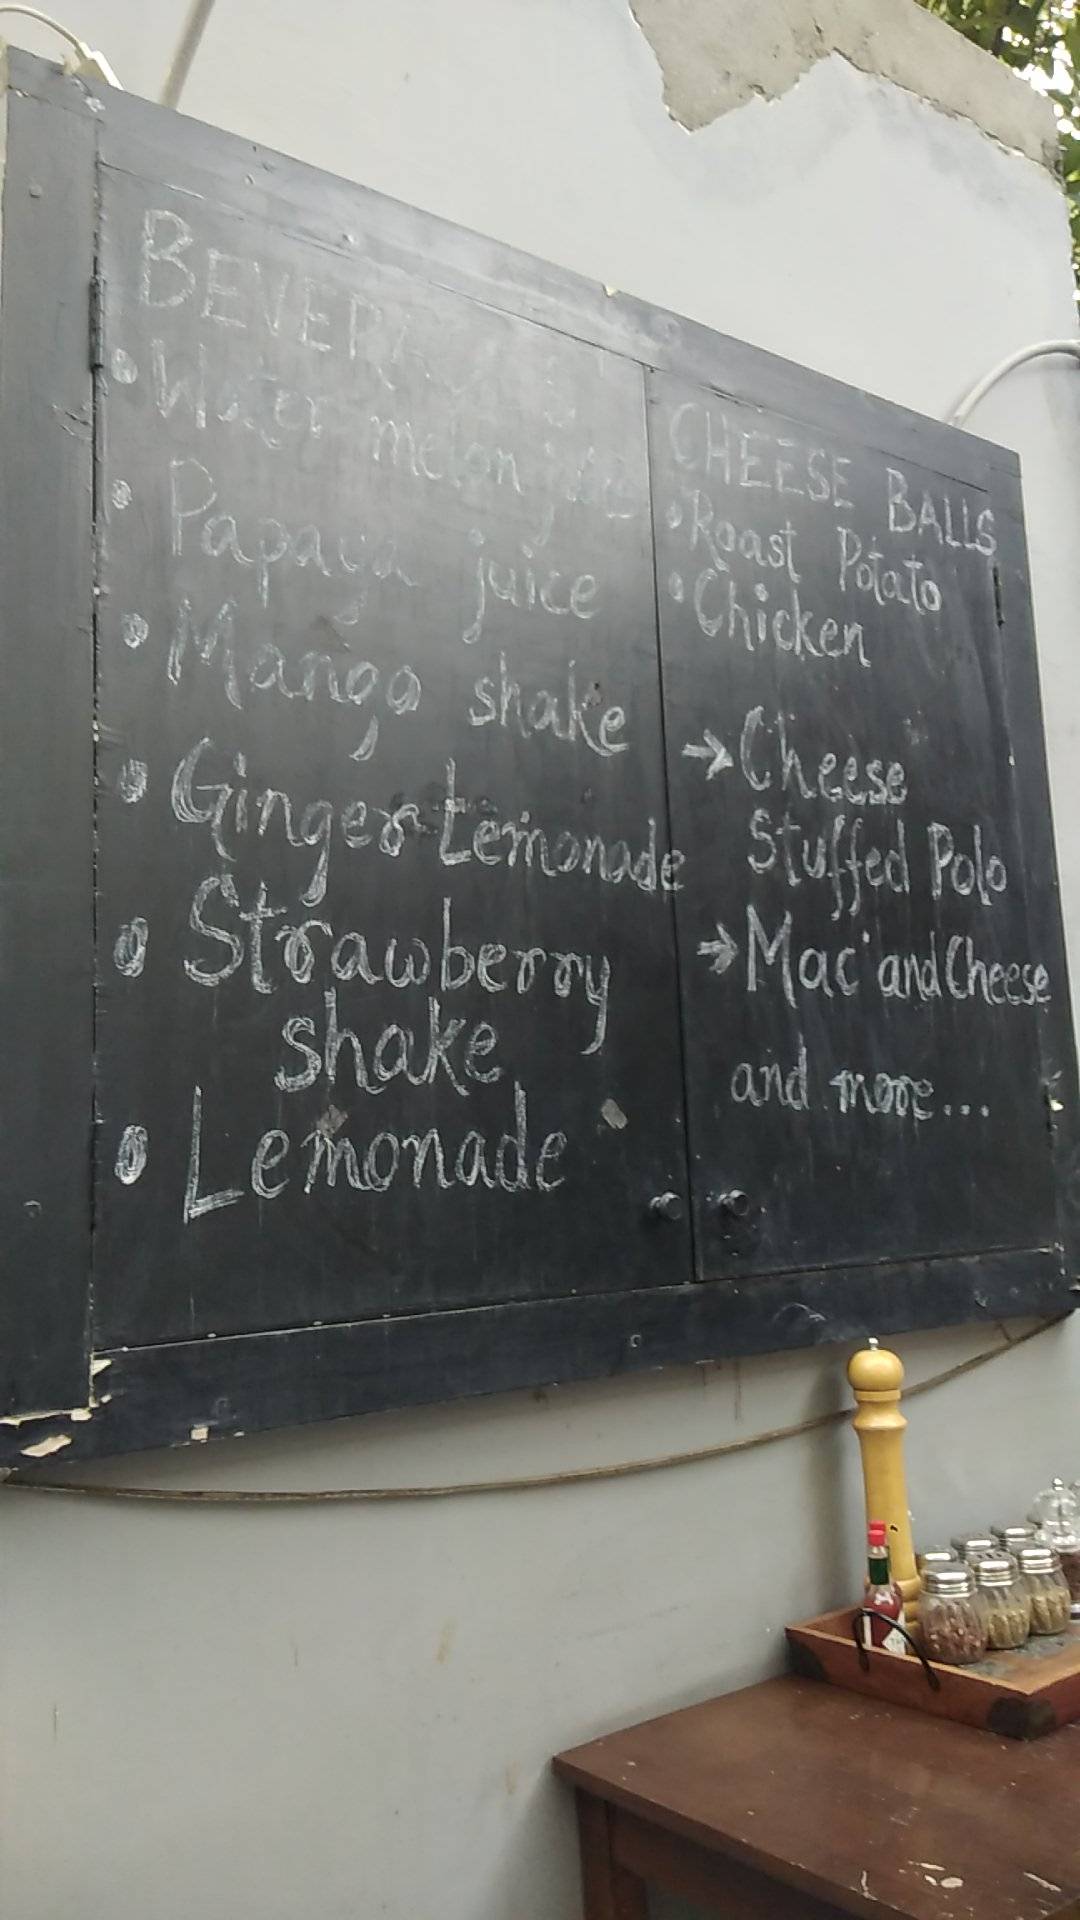 BEVERAGES
• Water melon juice
• Papaya juice
• Mango shake
• Ginger Lemonade
• Strawberry
shake
• Lemonade
CHEESE BALLS
• Roast Potato
• Chicken
→ Cheese
Stuffed Polo
→ Mac and Cheese
and more...